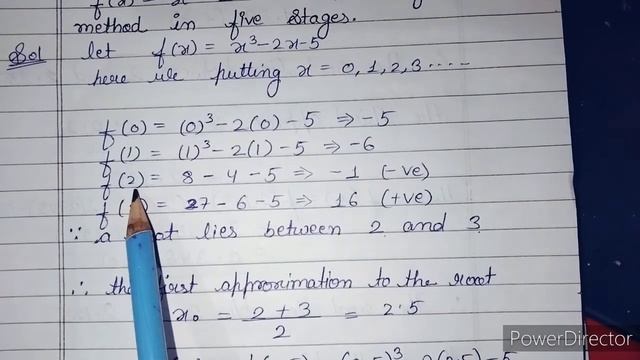 method in five stages.
Sol let f(x) = x³-2x-5
here we putting x = 0, 1, 2, 3 ----
f(0) = (0)³-2(0)-5 ⇒ -5
f(1) = (1)³-2(1)-5 ⇒ -6
f(2) = 8 - 4 - 5 ⇒ -1 (-ve)
f( ) = 27 - 6 - 5 ⇒ 16 (+ve)
∵ a lies between 2 and 3
∴ the first approximation to the root
x₀ = 2 + 3 / 2 = 2.5
PowerDirector